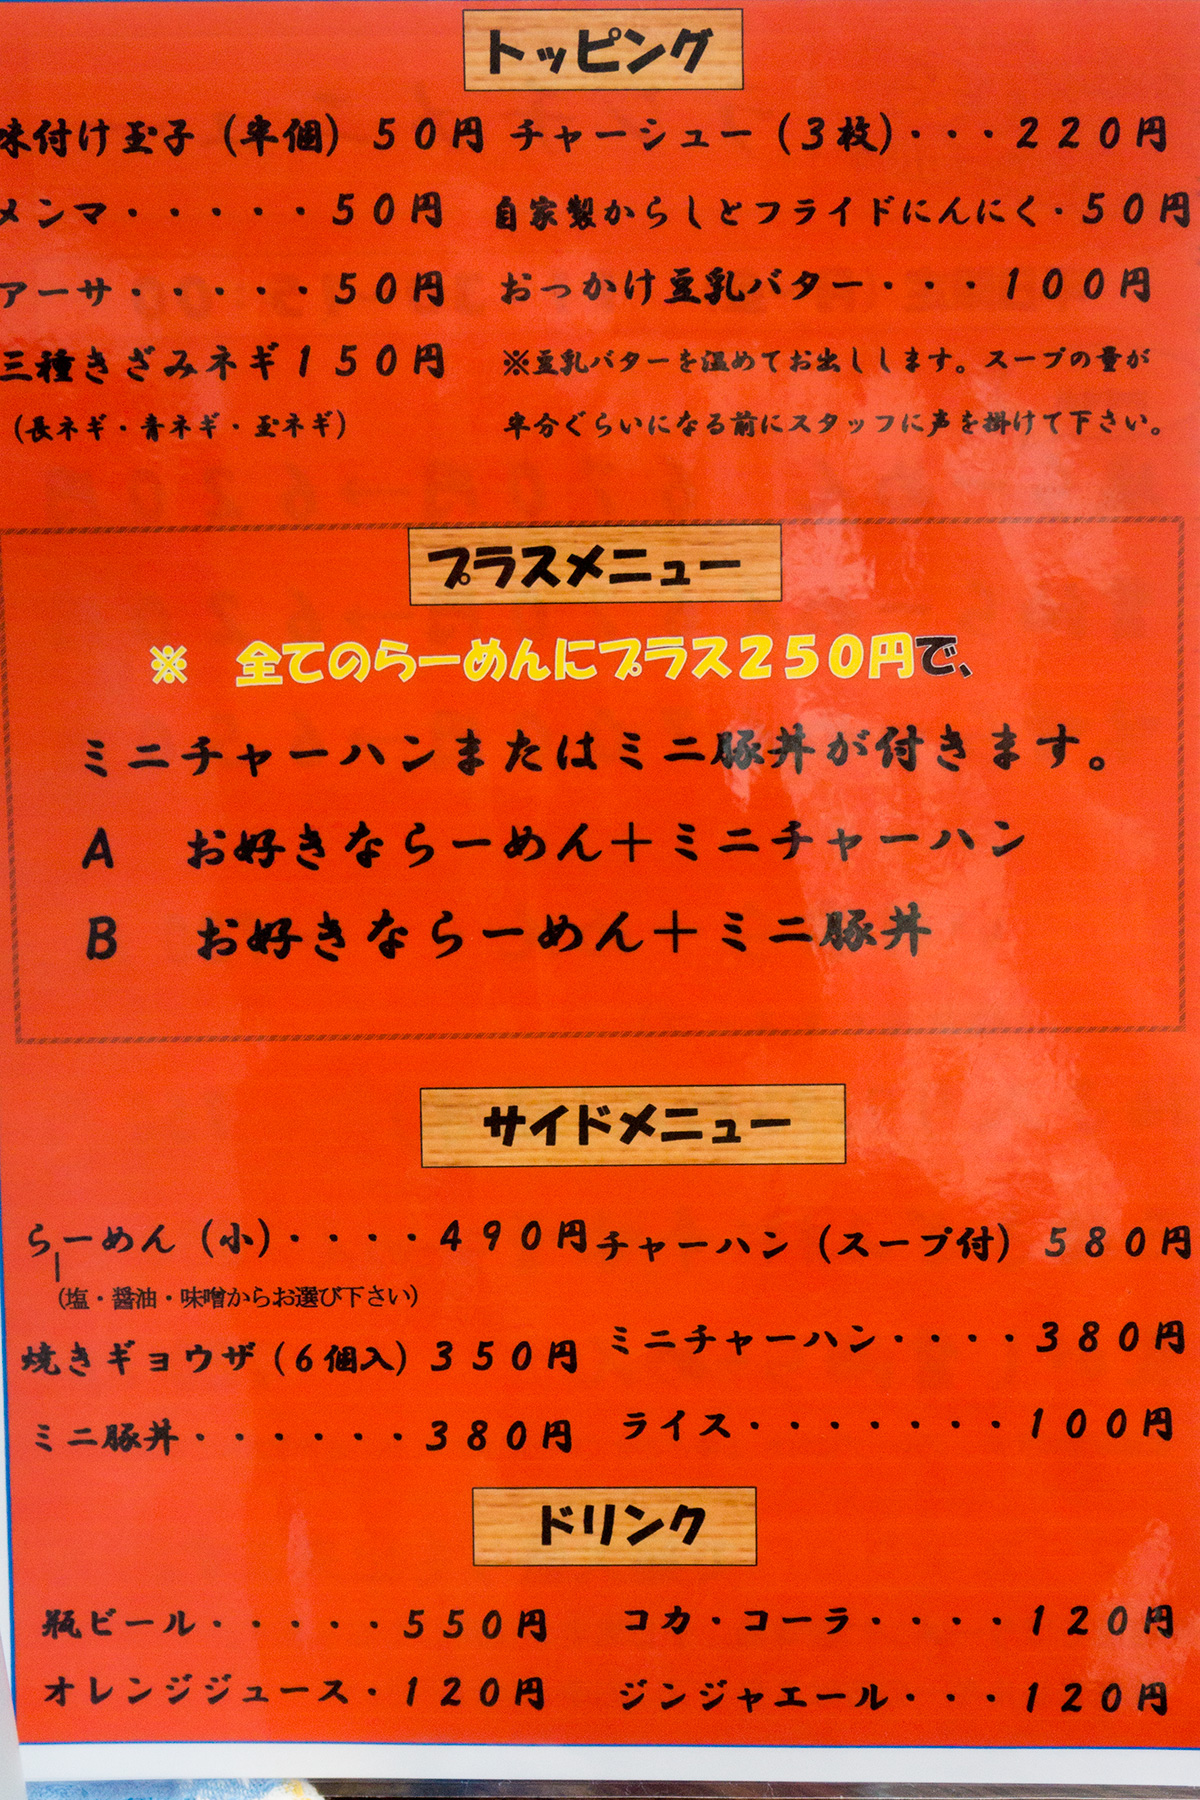 トッピング
味付け玉子（半個）５０円 チャーシュー（３枚）・・・２２０円
メンマ・・・・・５０円 自家製からしとフライドにんにく・５０円
アーサ・・・・・５０円 おっかけ豆乳バター・・・１００円
三種きざみネギ１５０円 ※豆乳バターを温めてお出しします。スープの量が
（長ネギ・青ネギ・玉ネギ） 半分ぐらいになる前にスタッフに声を掛けて下さい。
プラスメニュー
※　全てのらーめんにプラス２５０円で、
ミニチャーハンまたはミニ豚丼が付きます。
A　お好きならーめん＋ミニチャーハン
B　お好きならーめん＋ミニ豚丼
サイドメニュー
らーめん（小）・・・・４９０円 チャーハン（スープ付）５８０円
（塩・醤油・味噌からお選び下さい）
焼きギョウザ（６個入）３５０円 ミニチャーハン・・・・３８０円
ミニ豚丼・・・・・・３８０円 ライス・・・・・・・１００円
ドリンク
瓶ビール・・・・・５５０円 コカ・コーラ・・・・１２０円
オレンジジュース・１２０円 ジンジャエール・・・１２０円